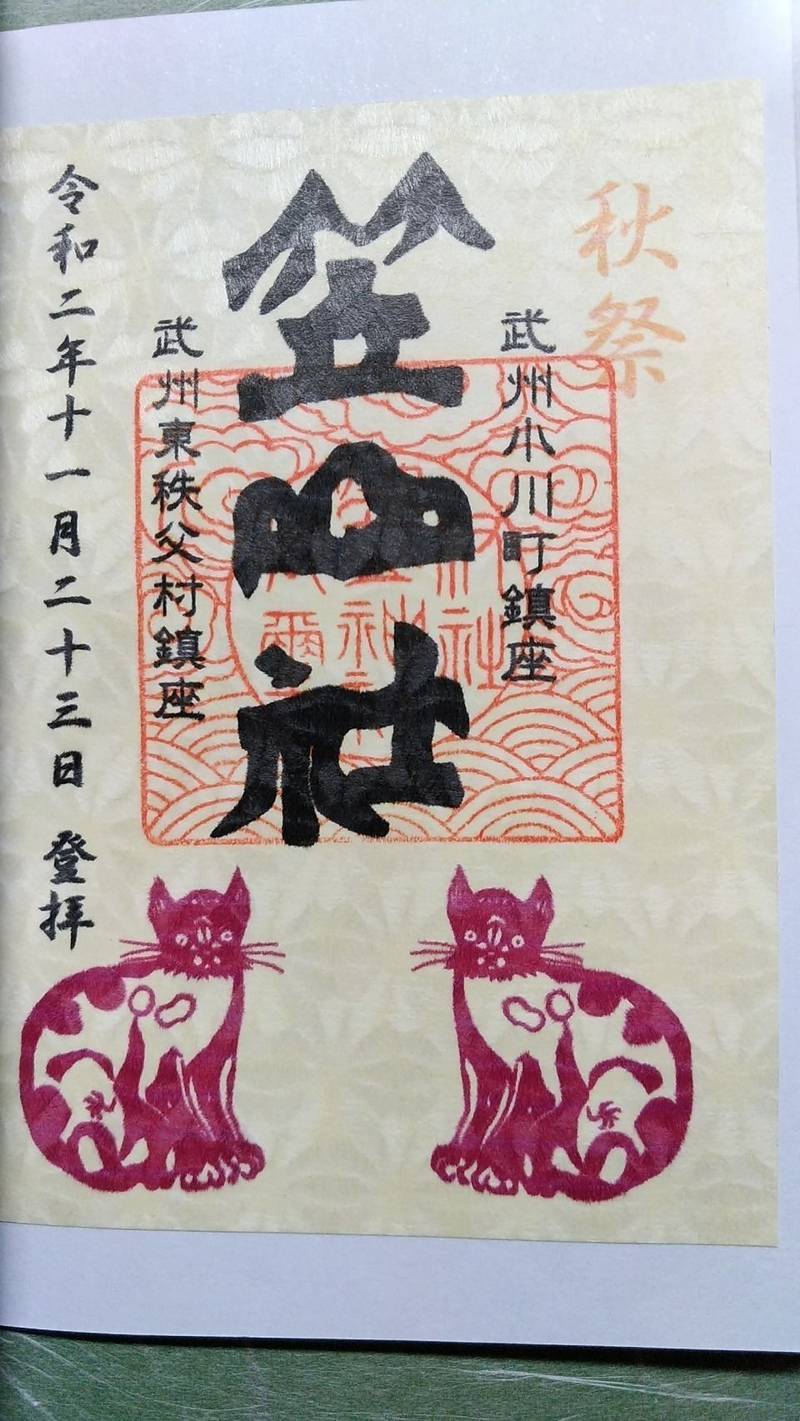 秋祭
武州小川町鎮座
笠山社
武州東秩父村鎮座
令和二年十一月二十三日 登拝